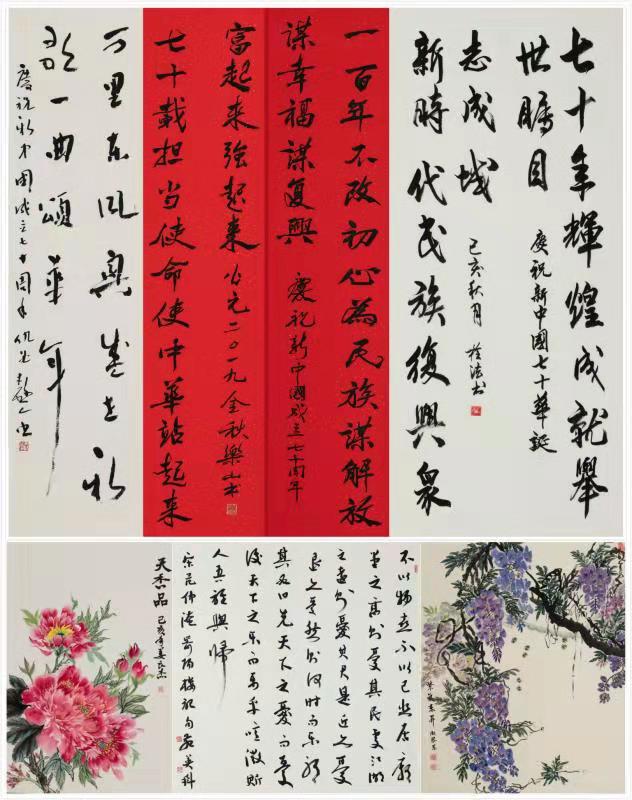 七十年輝煌成就舉
世矚目
慶祝新中國七十華誕
新時代民族復興眾
志成城
己亥秋月
一百年不改初心為民族謀解放
謀幸福謀复興
慶祝新中國成立七十周年
七十載担当使命使中華站起来
富起来強起来
公元二〇一九金秋樂山书
万里东风興盛世新
歌一曲頌華年
慶祝新中國成立七十周年
天香一品
己亥年姜
不以物喜不以己悲居廟
堂之高則憂其民處江湖
之遠則憂其君是進亦憂
退亦憂然則何時而樂耶
其必曰先天下之憂而憂
後天下之樂而樂乎噫微斯
人吾誰與歸
宋范仲淹岳陽樓記句